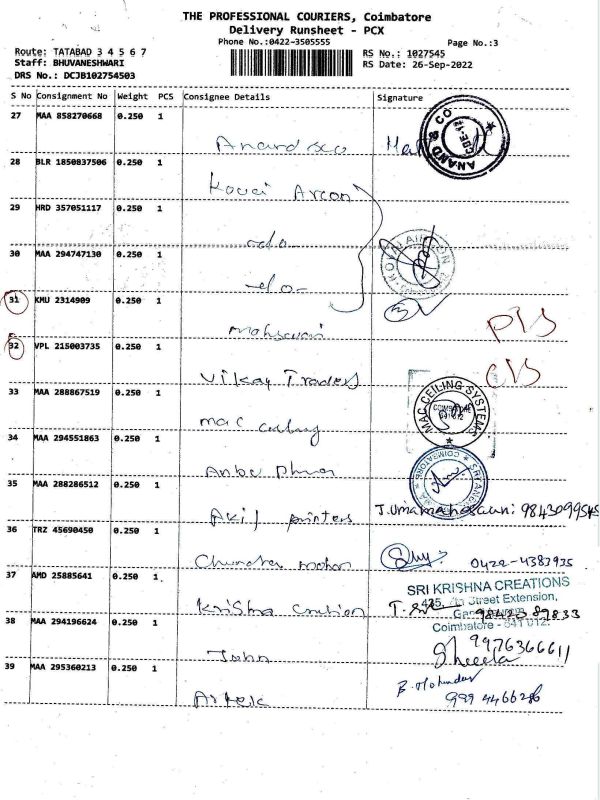 THE PROFESSIONAL COURIERS, Coimbatore
Delivery Runsheet - PCX
Phone No.:0422-3505555
Page No.:3
Route: TATABAD 3 4 5 6 7
RS No.: 1027545
Staff: BHUVANESHWARI
RS Date: 26-Sep-2022
DRS No.: DCJB102754503
S No Consignment No Weight PCS Consignee Details Signature
27 MAA 858270668 0.250 1
Anand &co
ANAND & CO
28 BLR 1850837506 0.250 1
Kovai Arcon
29 HRD 357051117 0.250 1
-do-
KOVAI AIRCON
30 MAA 294747130 0.250 1
-do-
31 KMU 2314909 0.250 1
32 VPL 215003735 0.250 1
Vikay Traders
33 MAA 288867519 0.250 1
Mac Ceiling
MAC CEILING SYSTEMS
COIMBATORE
34 MAA 294551863 0.250 1
COIMBATORE
35 MAA 288286512 0.250 1
printers
J.Umamaheswari: 9843099545
36 TRZ 45690450 0.250 1
Chandra mohan
0422-4383935
37 AMD 25885641 0.250 1
Krishna Creation
SRI KRISHNA CREATIONS
Street Extension,
Coimbatore - 641 012.
38 MAA 294196624 0.250 1
John
Sheela
9976366611
39 MAA 295360213 0.250 1
Artek
B. Mohinder
999 4466286